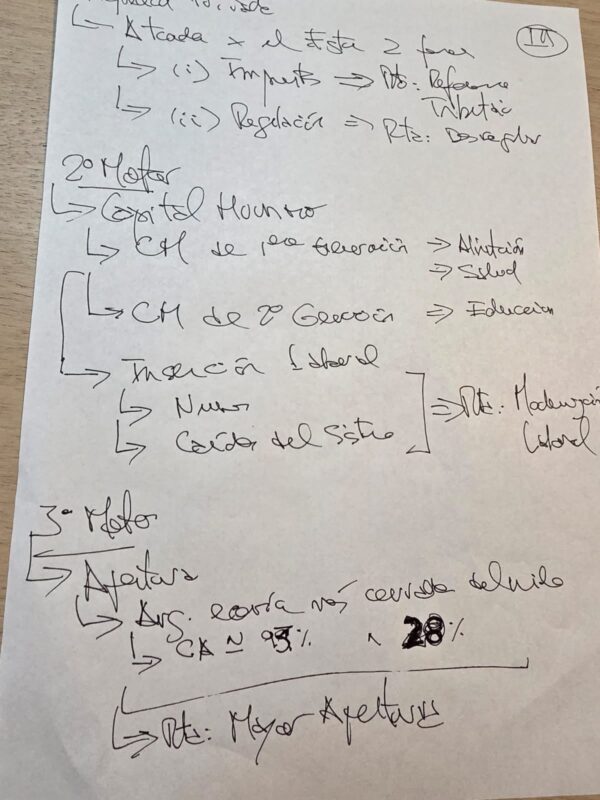 III
↳ Atcada x el Esta 2 formas
↳ (i) Impuests ⇒ Rta: Reforma Tributaria
↳ (ii) Regulación ⇒ Rta: Desregular
2º Motor
↳ Capital Humano
↳ CH de 1era Generación ⇒ Alimtación
⇒ Salud
↳ CH de 2º Generación ⇒ Educación
↳ Inserción Laboral
↳ Nuevos
↳ Caídos del Sistema
⇒ Rta: Modernización Laboral
3º Motor
↳ Apertura
↳ Arg. economía más cerrada del mundo
↳ CA ≃ 93% 28%
↳ Rta: Mayor Apertura